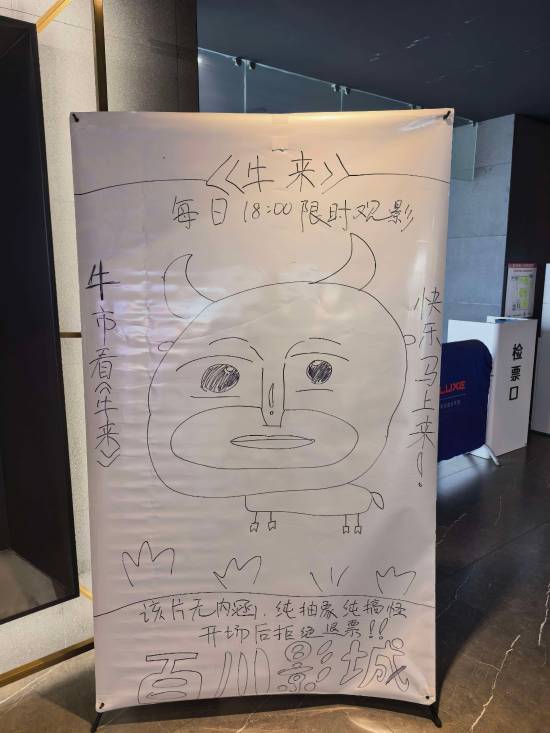 《牛来》
每日18:00限时观影
牛市看《牛来》
快乐马上来！
该片无内涵，纯抽象纯搞怪
开场后拒绝退票!!
百川影城
检票口
LUXE